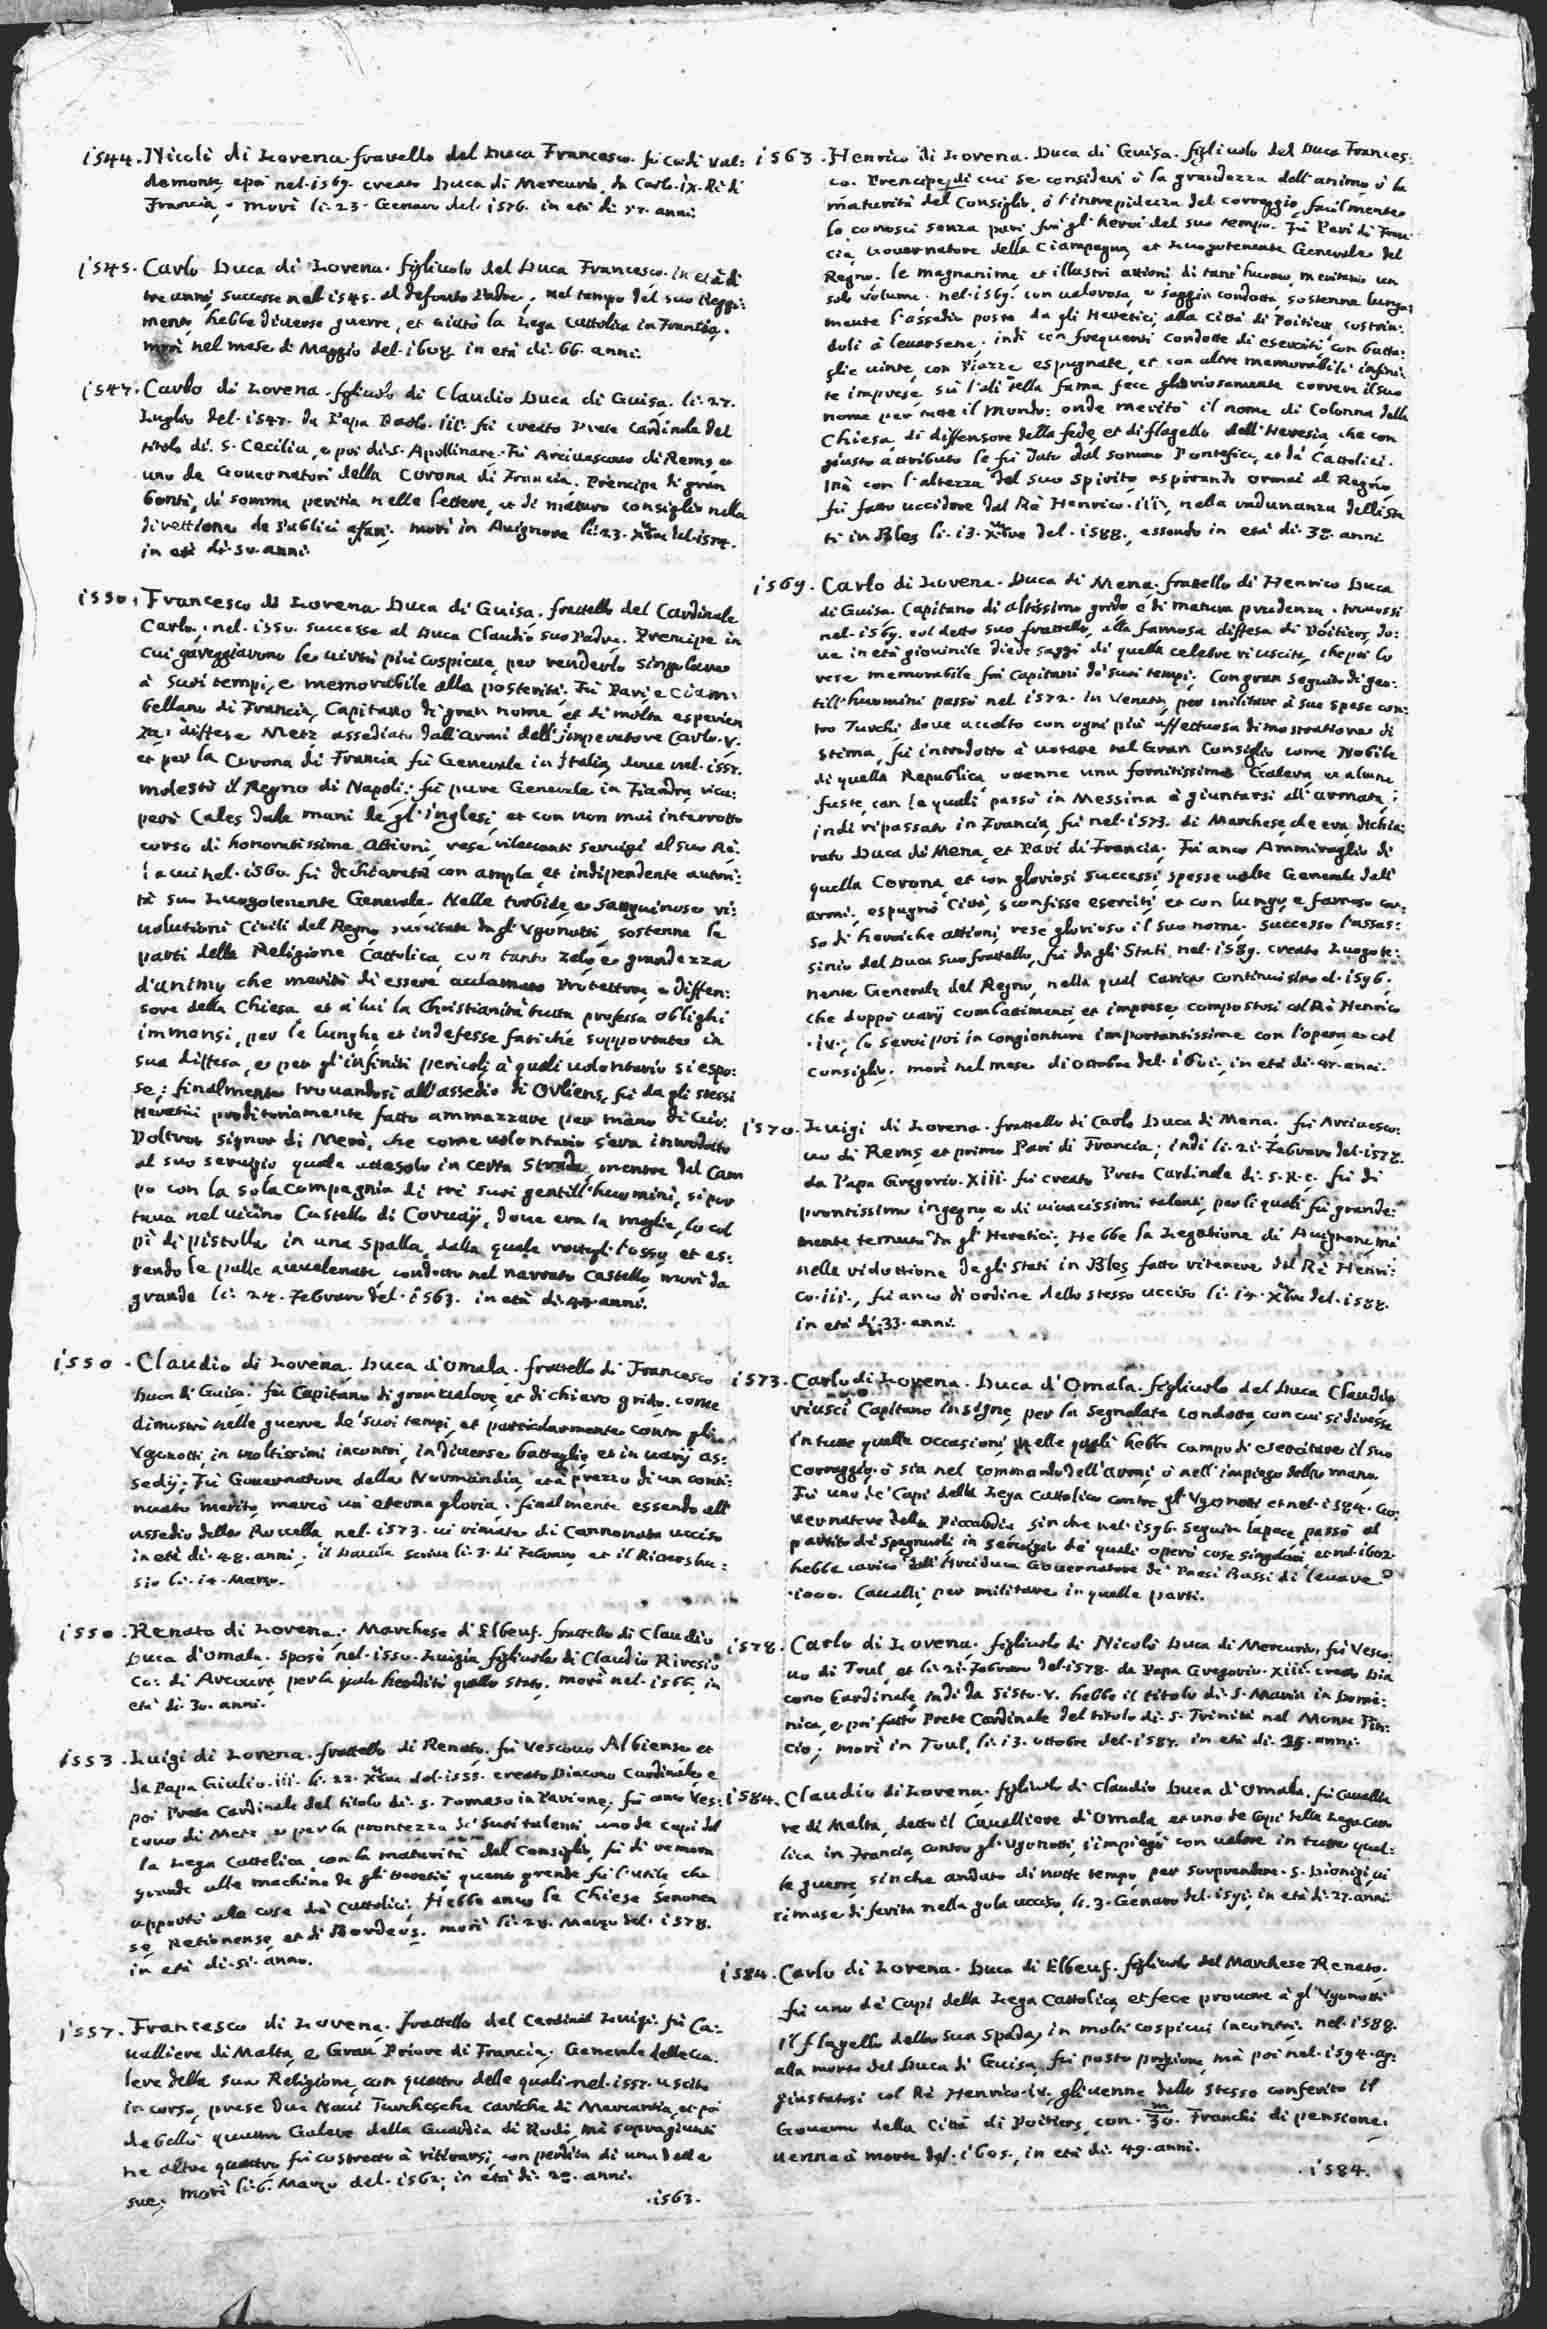 1544. Nicolò di Lorena. fratello del Duca Francesco. fù Co: di Val:
demont, e poi nel. 1569. creato Duca di Mercurio, da Carlo. IX. Rè di
Francia, morì li. 23. Genaro del. 1576. in età di 52. anni.
1545. Carlo Duca di Lorena. figliuolo del Duca Francesco. in età di
tre anni, successe nel 1545. al defonto Padre, nel tempo del suo Reggi:
mento, hebbe diverse guerre, et aiutò la Lega Cattolica in Francia.
morì nel mese di Maggio del. 1608. in età di. 66. anni.
1547. Carlo di Lorena. figliuolo di Claudio Duca di Guisa. li. 27.
Luglio del. 1547. da Papa Paolo. iii. fù creato Prete Cardinale del
titolo di. S. Cecilia, e poi di. S. Apollinare. Fù Arcivescovo di Rems, et
uno de Governatori della Corona di Francia. Prencipe di gran
bontà, di somma peritia nelle lettere, et di maturo consiglio nella
direttione de publici affari. morì in Avignone li. 23. Xbre del. 1574.
in età di. 50. anni.
1550. Francesco di Lorena. Duca di Guisa. fratello del Cardinale
Carlo. nel. 1550. successe al Duca Claudio suo Padre. Prencipe in
cui gareggiarono le virtù più cospicue, per renderlo singolare
à suoi tempi, e memorabile alla posterità. Fù Pari, e Ciam:
bellano di Francia, Capitano di gran nome, et di molta esperien
za: diffese Metz assediato dall'armi dell'Imperatore Carlo. V.
et per la Corona di Francia fù Generale in Italia, dove nel. 1557.
molestò il Regno di Napoli: fù pure Generale in Fiandra, ricu:
però Cales dalle mani de gl'Inglesi, et con non mai interrotto
corso di honoratissime attioni, rese rilevanti servigi al suo Rè.
da cui nel. 1560. fù dichiarato con ampla, et indipendente autori:
tà suo Luogotenente Generale. Nelle turbide, e sanguinose ri:
volutioni Civili del Regno, suscitate dagl'Vgonotti, sostenne le
parti della Religione Cattolica, con tanto zelo, e grandezza
d'animo, che meritò di essere acclamato Protettore, e diffen:
sore della Chiesa, et à lui la Christianità tutta professa oblighi
immensi, per le lunghe, et indefesse fatiche supportate in
sua diffesa, e per gl'infiniti pericoli, à quali volontario si espo:
se; finalmente trovandosi all'assedio di Orliens, fù da gli stessi
Heretici proditoriamente fatto ammazzare per mano di Gio:
Poltrot Signor di Merè, che come volontario s'era introdotto
al suo servigio, quale attesolo in certa strada, mentre dal Cam
po con la sola compagnia di trè suoi gentill'huomini, si por
tava nel vicino Castello di Cornay, dove era la moglie, lo col
pì di pistolla in una spalla, dalla quale rottogl'l'osso, et es:
sendo le palle avvelenate, condotto nel narrato Castello, morì da
grande li: 24. Febraro del. 1563. in età di. 44. anni.
1550. Claudio di Lorena. Duca d'Omala. fratello di Francesco
Duca di Guisa. fù Capitano di gran valore, et di chiaro grido. come
dimostrò nelle guerre de' suoi tempi, et particolarmente contro gli
Vgonotti, in moltissimi incontri, in diverse battaglie, et in varij as:
sedij. Fù Governatore della Normandia, et à prezzo di un conti:
nuato merito, marcò un'eterna gloria. finalmente essendo all'
assedio della Roccella nel. 1573. vi rimase di cannonata ucciso
in età di. 48. anni; il Davila scrive li. 3. di Febraro, et il Ricershu:
sio li. 14. Marzo.
1550. Renato di Lorena. Marchese d'Elbeuf. fratello di Claudio
Duca d'Omala. sposò nel. 1550. Luigia figliuola di Claudio Rivesio
Co: di Arcourt, per la quale hereditò quello stato. morì nel. 1566. in
età di. 30. anni.
1553. Luigi di Lorena. fratello di Renato. fù Vescovo Albiense et
da Papa Giulio. iii. li. 22. Xbre del. 1555. creato Diacono Cardinale, e
poi Prete Cardinale del titolo di. S. Tomaso in Parione, fù anco Ves:
covo di Metz, e per la prontezza de' suoi talenti, uno de capi del
la Lega Cattolica, con la maturità del consiglio, fù di remora
grande alle machine de gli Heretici, quanto grande fù l'utile che
apportò alle cose dei Cattolici. Hebbe anco le Chiese Senonen
se, Retionense, et di Bordeus. morì li. 28. Marzo del. 1578.
in età di. 51. anno.
1557. Francesco di Lorena. fratello del Cardinal Luigi. fù Ca:
valliere di Malta, e Gran Priore di Francia, Generale delle Ga:
lere della sua Religione, con quattro delle quali nel. 1557. uscito
in corso, prese due Navi Turchesche cariche di Mercantia, et poi
debellò quattro Galere della Guardia di Rodi, mà sopragiunti
ne altre quattro, fù costretto à ritirarsi, con perdita di una delle
sue; morì li. 6. Marzo del. 1562; in età di. 28. anni.
.1563.
1563. Henrico di Lorena. Duca di Guisa. figliuolo del Duca Frances:
co. Prencipe, di cui se consideri ò la grandezza dell'animo, ò la
maturità del Consiglio, ò l'intrepidezza del coraggio, facilmente
lo conosci senza pari frà gl'heroi del suo tempo. Fù Pari di Fran
cia, Governatore della Ciampagna, et Luogotenente Generale del
Regno. le magnanime, et illustri attioni di tant'huomo, meritano un
solo volume. nel. 1569. con valorosa, e saggia condotta, sostenne lunga:
mente l'assedio posto da gli Heretici, alla Città di Poitiers, costrin:
doli à levarsene; indi con frequenti condotte di eserciti, con batta:
glie vinte, con Piazze espugnate, et con altre memorabili, infini:
te imprese, sù l'ali della fama fece gloriosamente correre il suo
nome per tutto il mondo: onde meritò il nome di Colonna della
Chiesa, di diffensore della fede, et di flagello dell'Heresia, che con
giusto attributo le fù dato dal sommo Pontefice, et da Cattolici.
Mà con l'altezza del suo spirito, aspirando ormai al Regno
fù fatto uccidere dal Rè Henrico. iii, nella radunanza delli Sta
ti in Bles li. 13. Xbre del. 1588., essendo in età di. 38. anni.
1569. Carlo di Lorena. Duca di Mena. fratello di Henrico Duca
di Guisa. Capitano di altissimo grido, e di matura prudenza. trovossi
nel. 1569. col detto suo fratello, alla famosa diffesa di Poitiers, do:
ve in età giovinile diede saggi di quella celebre riuscita, che poi lo
rese memorabile frà Capitani de' suoi tempi. Con gran seguito di gen:
till'huomini passò nel 1572. in Venetia, per militare à sue spese con:
tro Turchi, dove accolto con ogni più affettuosa dimostratione di
stima, fù introdotto à votare nel Gran Consiglio come Nobile
di quella Republica, ottenne una fornitissima Galera, et alcune
fuste, con le quali passò in Messina à giuntarsi all'armata;
indi ripassato in Francia, fù nel. 1573. di Marchese, che era, dichia:
rato Duca di Mena, et Pari di Francia. Fù anco Ammiraglio di
quella Corona, et con gloriosi successi, spesse volte Generale dell'
armi, espugnò Città, sconfisse eserciti, et con lungo, e famoso cor:
so di heroiche attioni, rese glorioso il suo nome. Successo l'assas:
sinio del Duca suo fratello, fù dagli Stati nel. 1589. creato Luogote:
nente Generale del Regno, nella qual carica continuò sino al. 1596.
che doppò varij combattimenti, et imprese, compostosi col Rè Henrico
. iv., lo servì poi in congionture importantissime con l'opera, e col
consiglio. morì nel mese di ottobre del. 1601. in età di. 47. anni.
1570. Luigi di Lorena. fratello di Carlo Duca di Mena. fù Arcivesco:
vo di Rems, et primo Pari di Francia; indi li. 21. Febraro del. 1578.
da Papa Gregorio. XIII. fù creato Prete Cardinale di. S. R. C. fù di
prontissimo ingegno, e di vivacissimi talenti, per li quali fù grande:
mente temuto da gl'Heretici. Hebbe la Legatione di Avignone, mà
nella riduttione degli Stati in Bles, fatto ritenere dal Rè Henri:
co. iii., fù anco di ordine dello stesso ucciso li. 14. Xbre del. 1588.
in età di. 33. anni.
1573. Carlo di Lorena. Duca d'Omala. figliuolo del Duca Claudio
riuscì Capitano insigne, per la segnalata condotta, con cui si diresse
in tutte quelle occasioni, nelle quali hebbe campo di esercitare il suo
Coraggio, ò sia nel commando dell'armi, ò nell'impiego della mano.
Fù uno de' Capi della Lega Cattolica contro gl'Vgonotti, et nel. 1584. Go:
vernatore della Piccardia, sin che nel. 1596. seguita la pace, passò al
partito de' Spagnuoli, in servigio de' quali operò cose singolari, et nel. 1602.
hebbe carico dall'Arciduca Governatore de' Paesi Bassi, di levare
. 1000. Cavalli, per militare in quelle parti.
1578. Carlo di Lorena. figliuolo di Nicolò Duca di Mercurio. fù Vesco:
vo di Toul, et li. 21. Febraro del. 1578. da Papa Gregorio. XIII. creato Dia
cono Cardinale, indi da Sisto. V. hebbe il titolo di. S. Maria in Dome:
nica, e poi fatto Prete Cardinale del titolo di. S. Trinità nel Monte Pin:
cio; morì in Toul, li. 13. ottobre del. 1587. in età di. 25. anni.
1584. Claudio di Lorena. figliuolo di Claudio Duca d'Omala. fù Cavallie
re di Malta, detto il Cavalliere d'Omala, et uno de Capi della Lega Catto
lica in Francia, contro gl'Vgonotti, s'impiegò con valore in tutte quel:
le guerre, sinche andato di notte tempo, per sorprendere. S. Dionigi, vi
rimase di ferita nella gola ucciso, li. 3. Genaro del. 1591. in età di. 27. anni
1584. Carlo di Lorena. Duca di Elbeuf. figliuolo del Marchese Renato.
fù uno de' Capi della Lega Cattolica, et fece provare à gl'Vgonotti
il flagello della sua spada, in molti cospicui incontri. nel. 1588.
alla morte del Duca di Guisa, fù posto prigione, mà poi nel. 1594. ag:
giustatosi col Rè Henrico. iv. gli venne dallo stesso conferito il
Governo della Città di Poitiers, con. 30. m Franchi di pensione.
venne à morte del. 1605., in età di. 49. anni.
. 1584.